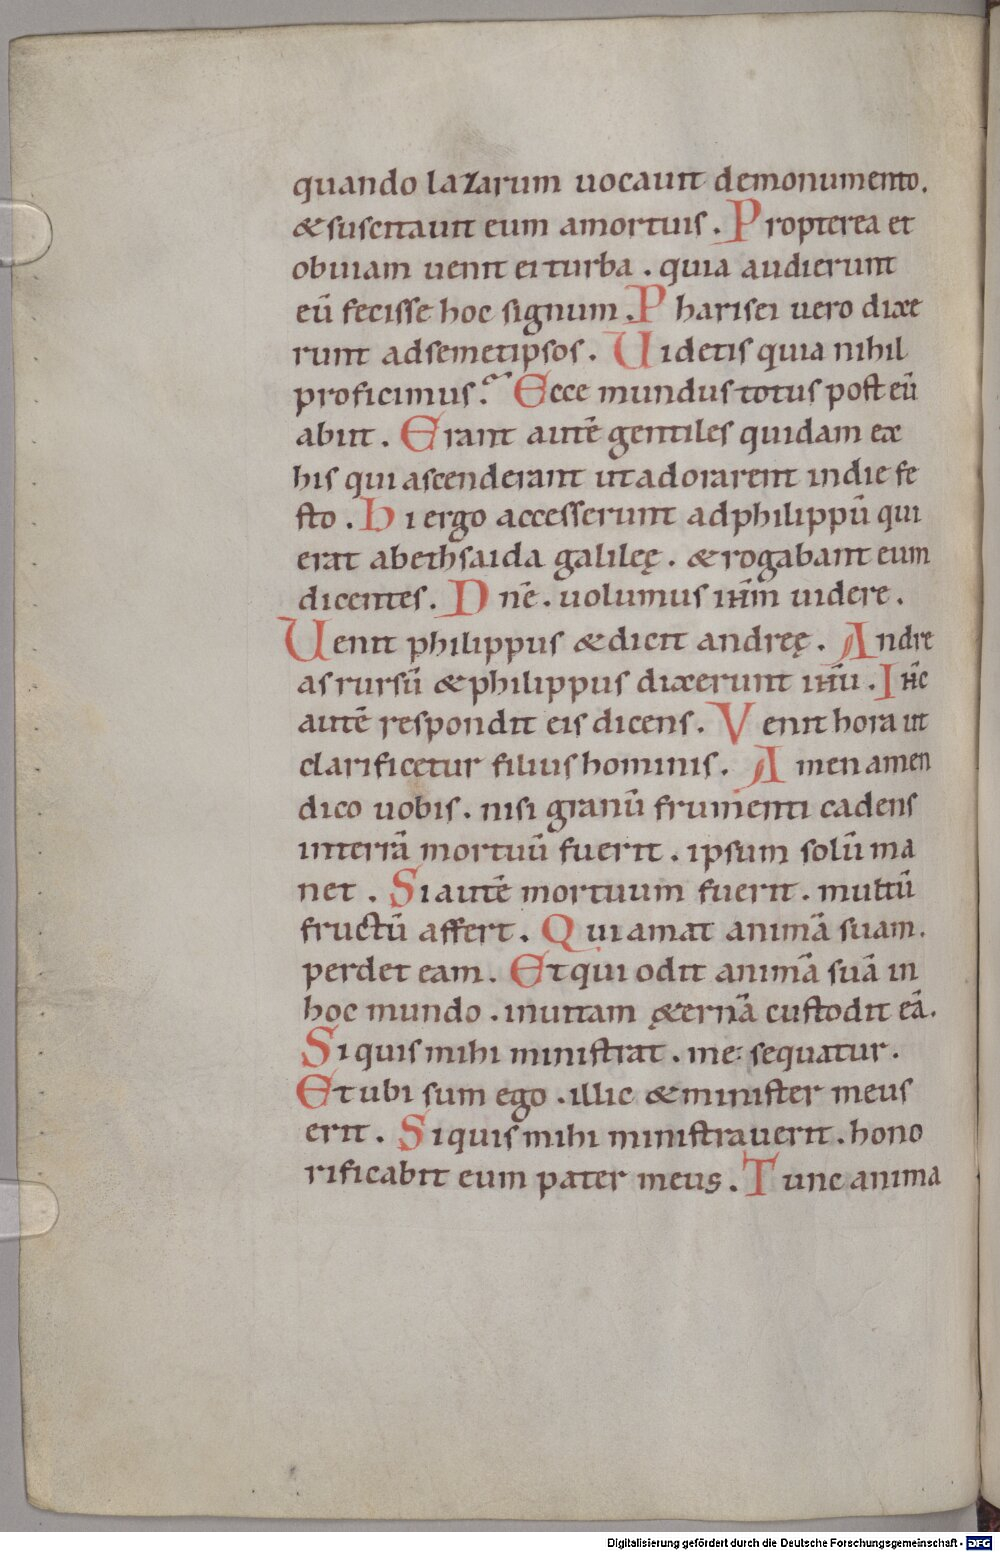 quando lazarum uocauit demonumento.
&suscitauit eum amortuis. Propterea et
obuiam uenit ei turba. quia audierunt
eū fecisse hoc signum. Pharisei uero dixe
runt adsemetipsos. Uidetis quia nihil
proficimus? Ecce mundus totus post eū
abiit. Erant autē gentiles quidam ex
his qui ascenderant ut adorarent indie fe
sto. Hi ergo accesserunt adphilippū qui
erat abethsaida galileę. & rogabant eum
dicentes. Dnē. uolumus ihm̄ uidere.
Uenit philippus & dicit andreę. Andre
as rursū & philippus dixerunt ihū. Ihc̄
autē respondit eis dicens. Venit hora ut
clarificetur filius hominis. Amen amen
dico uobis. nisi granū frumenti cadens
interrā mortuū fuerit. ipsum solū ma
net. Si autē mortuum fuerit. multū
fructū affert. Qui amat animā suam.
perdet eam. Et qui odit animā suā in
hoc mundo. inuitam ę&ernā custodit eā.
Si quis mihi ministrat. me: sequatur.
Et ubi sum ego. illic & minister meus
erit. Si quis mihi ministrauerit. hono
rificabit eum pater meus. Tunc anima
Digitalisierung gefördert durch die Deutsche Forschungsgemeinschaft - DFG